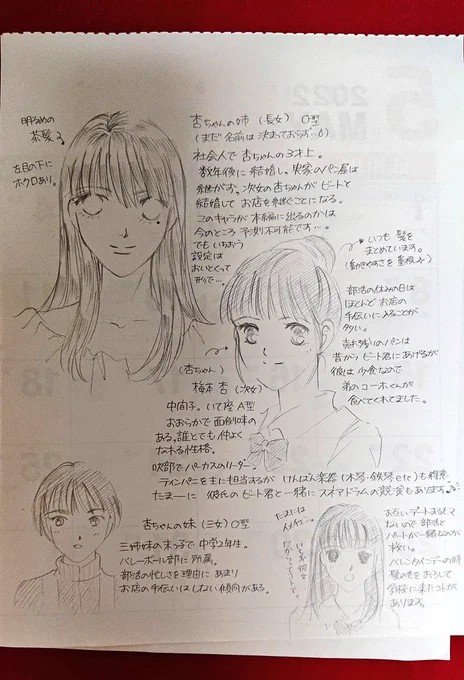 明るめの
茶髪
左目の下に
ホクロあり。
杏ちゃんの姉(長女) O型
(まだ名前は決まっておらず…)
社会人で杏ちゃんの3才上。
数年後に結婚し、実家のパン屋は
継がず。次女の杏ちゃんがビートと
結婚してお店を継ぐことになる。
このキャラが本編に出るのかは
今のところ予測不可能です…。
でもいちおう
設定は
おいとくって
形で…。
いつも髪を
まとめています。
(動きやすさを重視)
部活の休みの日は
ほとんどお店の
手伝いに入ることが
多い。
売れ残りのパンは
昔からビート君にあげるが
彼は少食なので
弟のコーホくんが
食べてくれてました。
(杏ちゃん)
梅本 杏 (次女)
中間子。いて座A型
おおらかで面倒味の
ある。誰とでも仲よく
なれる性格。
吹部でパーカスのリーダー
ティンパニを主に担当するが けんばん楽器(木琴・鉄琴etc)も得意
たまーに 彼氏のビート君と一緒にスネアドラムの競演もあります。
杏ちゃんの妹 (三女) O型
三姉妹の末っ子で中学2年生。
バレーボール部に所属。
部活の忙しさを理由にあまり
お店の手伝いはしない傾向がある。
たまには
イメチェン…
お互いデートするヒマ
ないので部活と
パートが一緒なのが
救い。
バレンタインデーの時
髪の毛をおろして
学校に来たコトが
あります。
2022
MAY
5